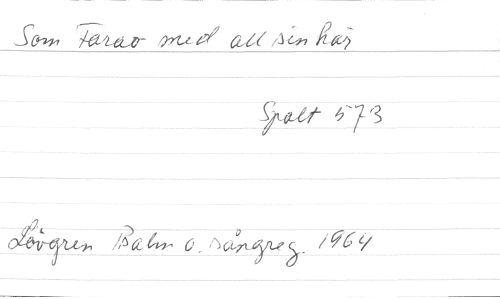 Som Farao med all sin här
Spalt 573
Lövgren Psalm o. sångreg. 1964